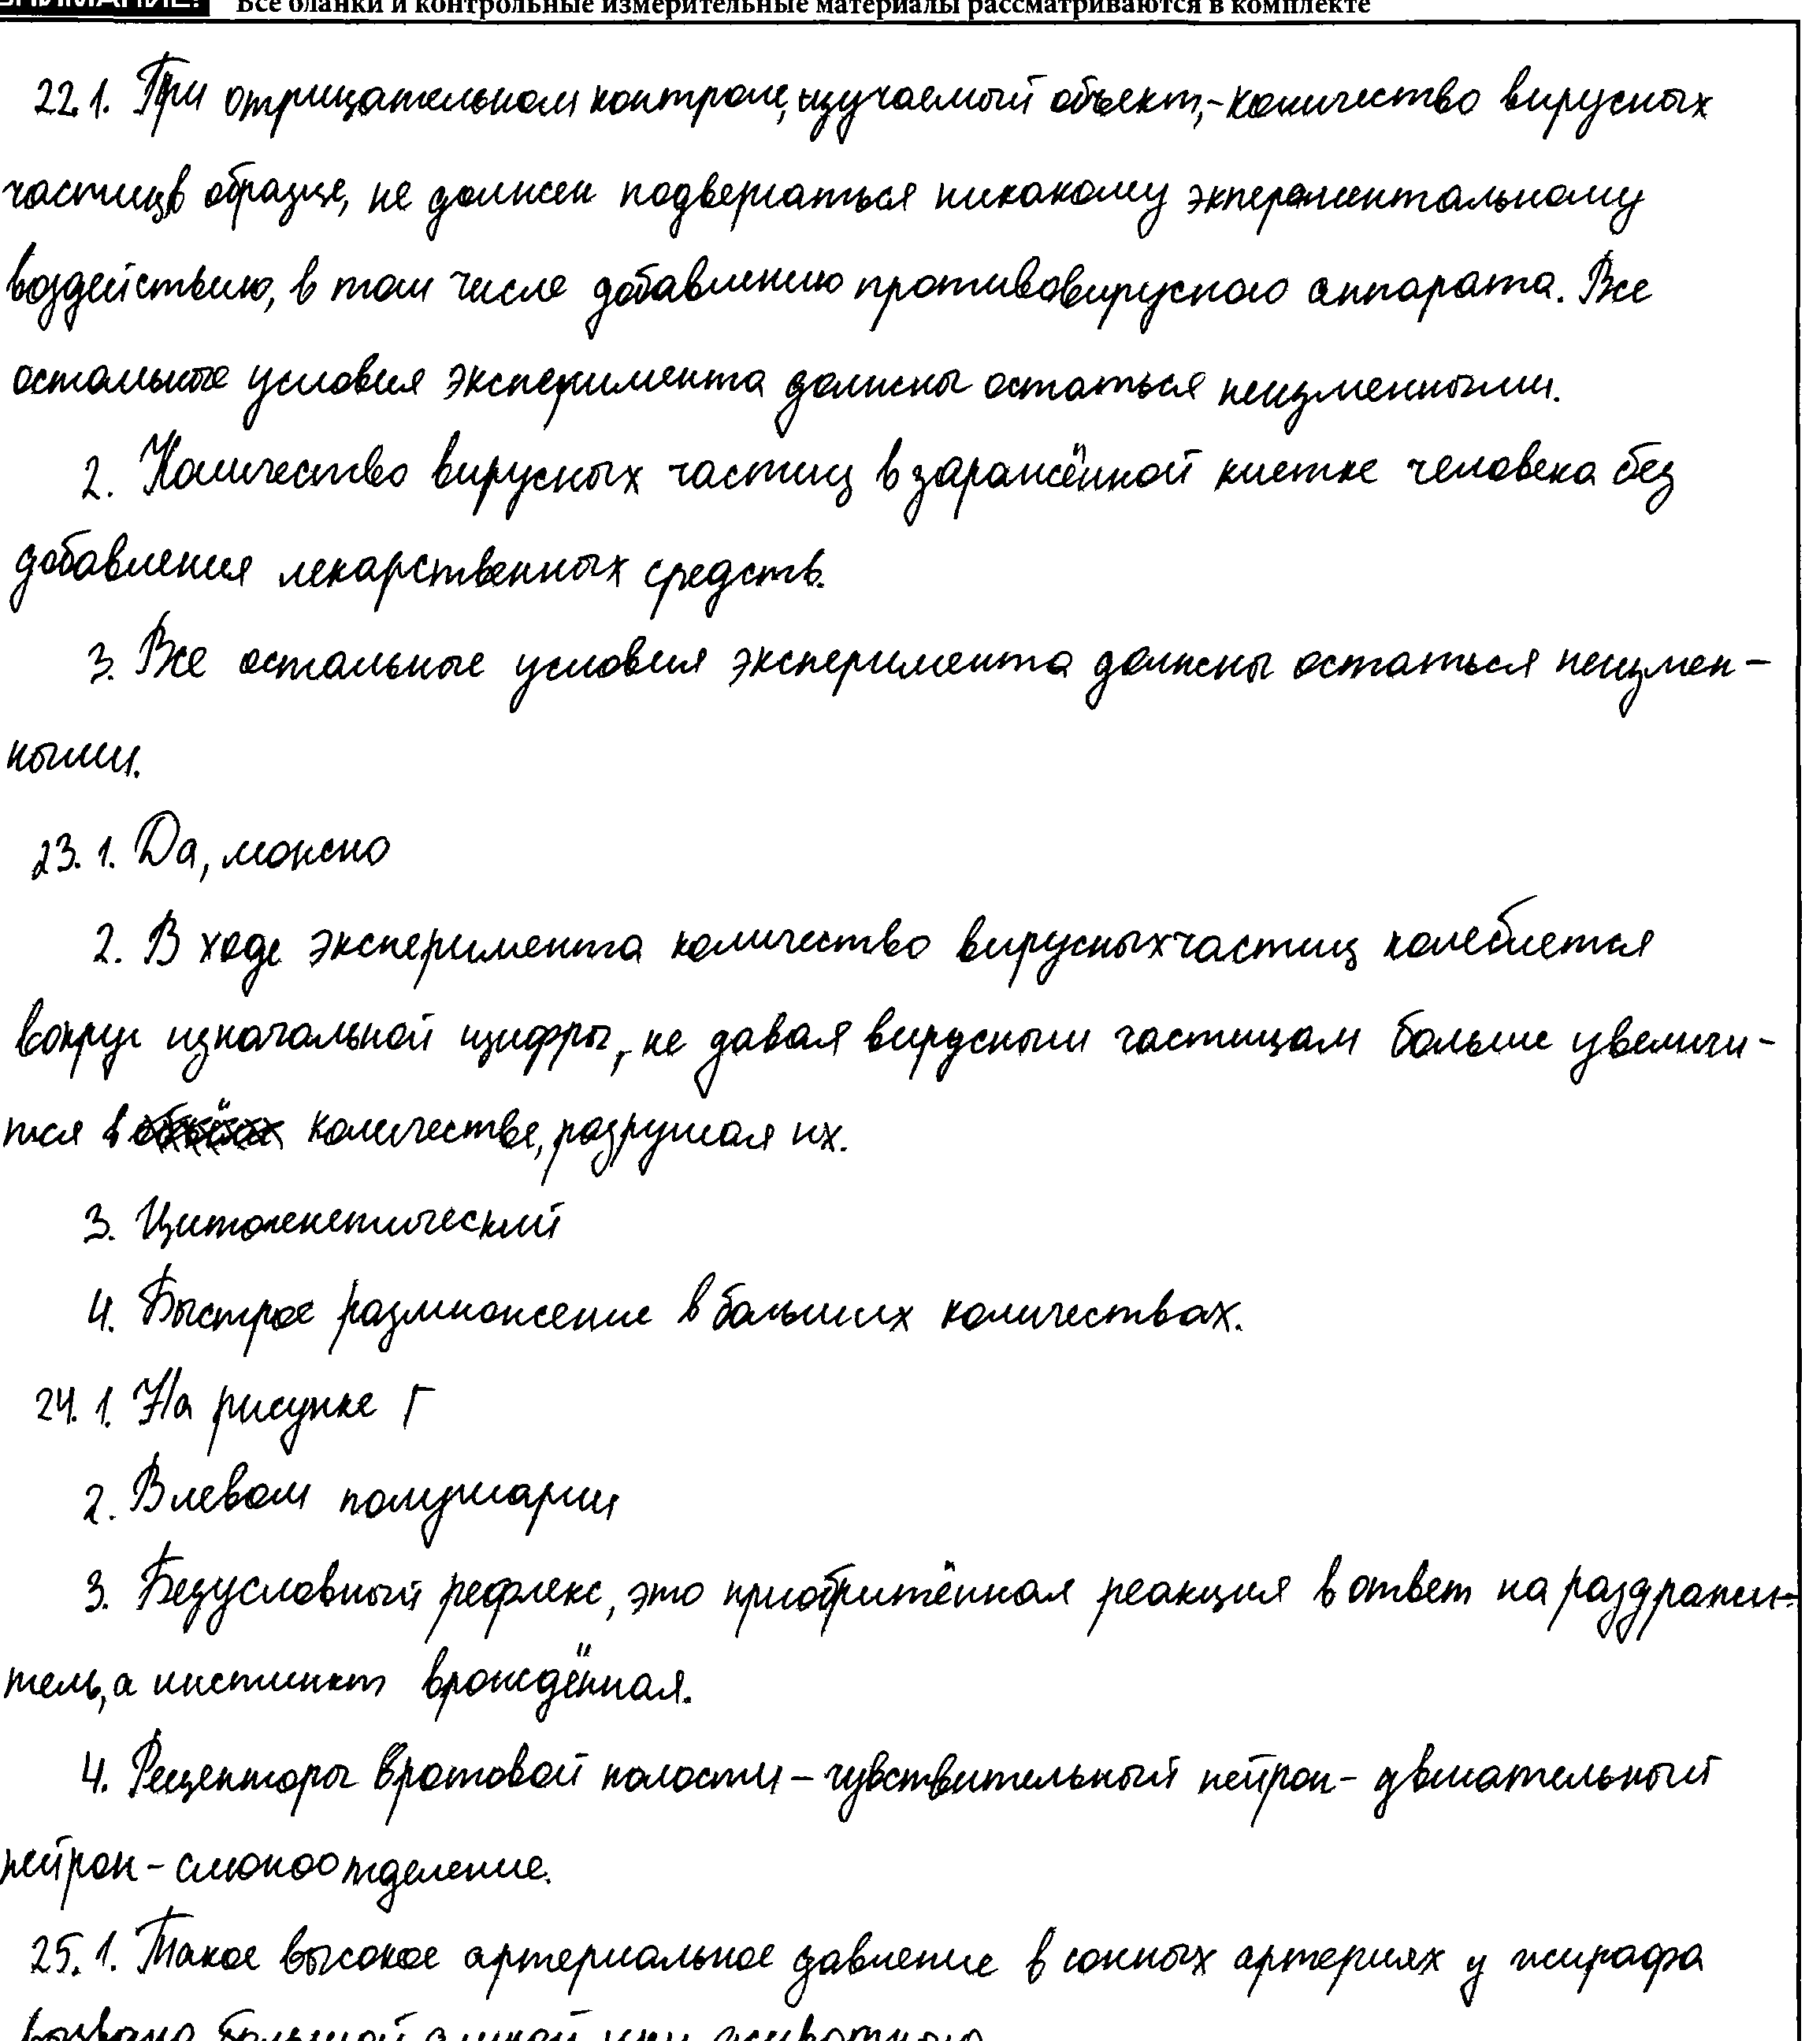 ВНИМАНИЕ! Все бланки и контрольные измерительные материалы рассматриваются в комплекте
22.1. При отрицательном контроле, изучаемый объект,-количество вирусных
частиц в образце, не должен подвергаться никакому эксперементальному
воздействию, в том числе добавлению противовирусного аппарата. Все
остальные условия эксперимента должны остаться неизменными.
2. Количество вирусных частиц в заражённой клетке человека без
добавления лекарственных средств.
3. Все остальные условия эксперимента должны остаться неизмен-
ными.
23. 1. Да, можно
2. В ходе эксперимента количество вирусных частиц колеблется
вокруг изначальной цифры, не давая вирусным частицам больше увеличи-
тся в количестве, разрушая их.
3. Цитогенетический
4. Быстрое размножение в больших количествах.
24. 1. На рисунке Г
2. В левом полушарии
3. Безусловный рефлекс, это приобритённая реакция в ответ на раздражи-
тель, а инстинкт врождённая.
4. Рецепторы в ротовой полости – чувствительный нейрон – двигательный
нейрон – слюноотделение.
25. 1. Такое высокое артериальное давление в сонных артериях у жирафа
вызвано большой длиной шеи животного